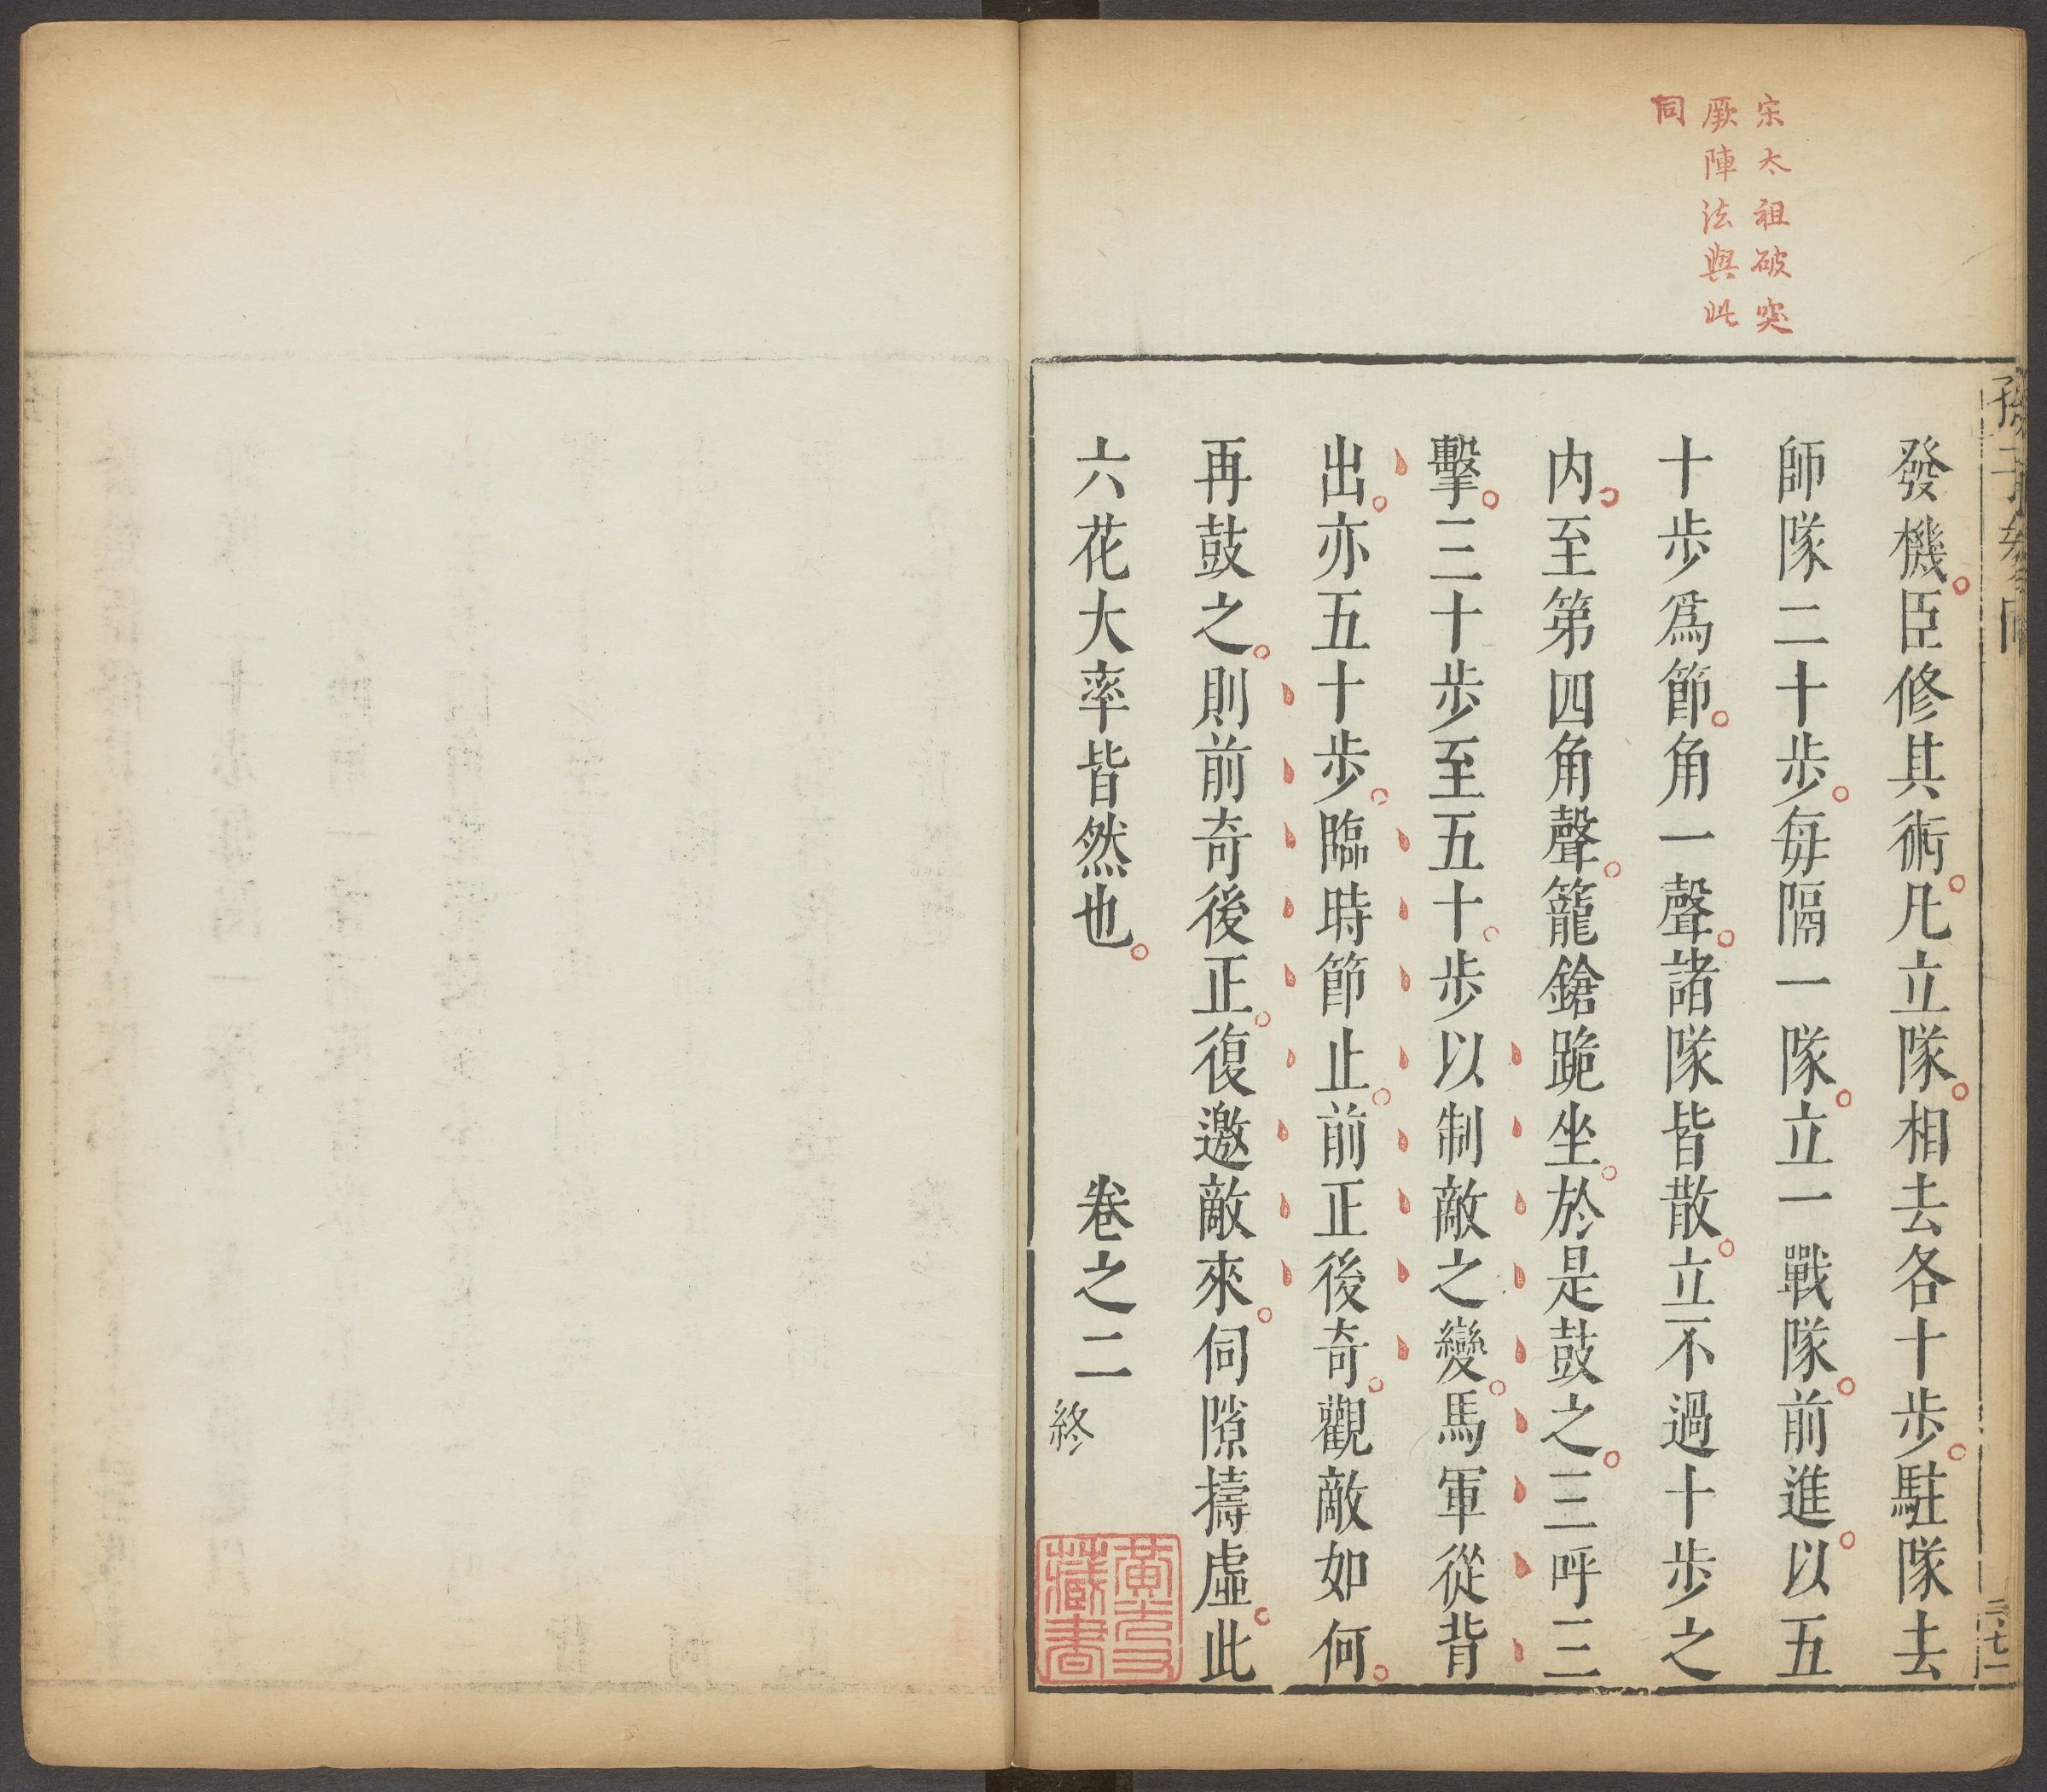 宋太祖破突
厥陣法與此
同
發機臣修其術凡立隊相去各十步駐隊去
師隊二十步每隔一隊立一戰隊前進以五
十步爲節角一聲諸隊皆散立不過十步之
内至第四角聲籠鎗跪坐於是鼓之三呼三
擊三十步至五十步以制敵之變馬軍從背
出亦五十步臨時節止前正後奇觀敵如何
再鼓之則前奇後正復邀敵來伺隙擣虛此
六花大率皆然也 卷之二終
藏書